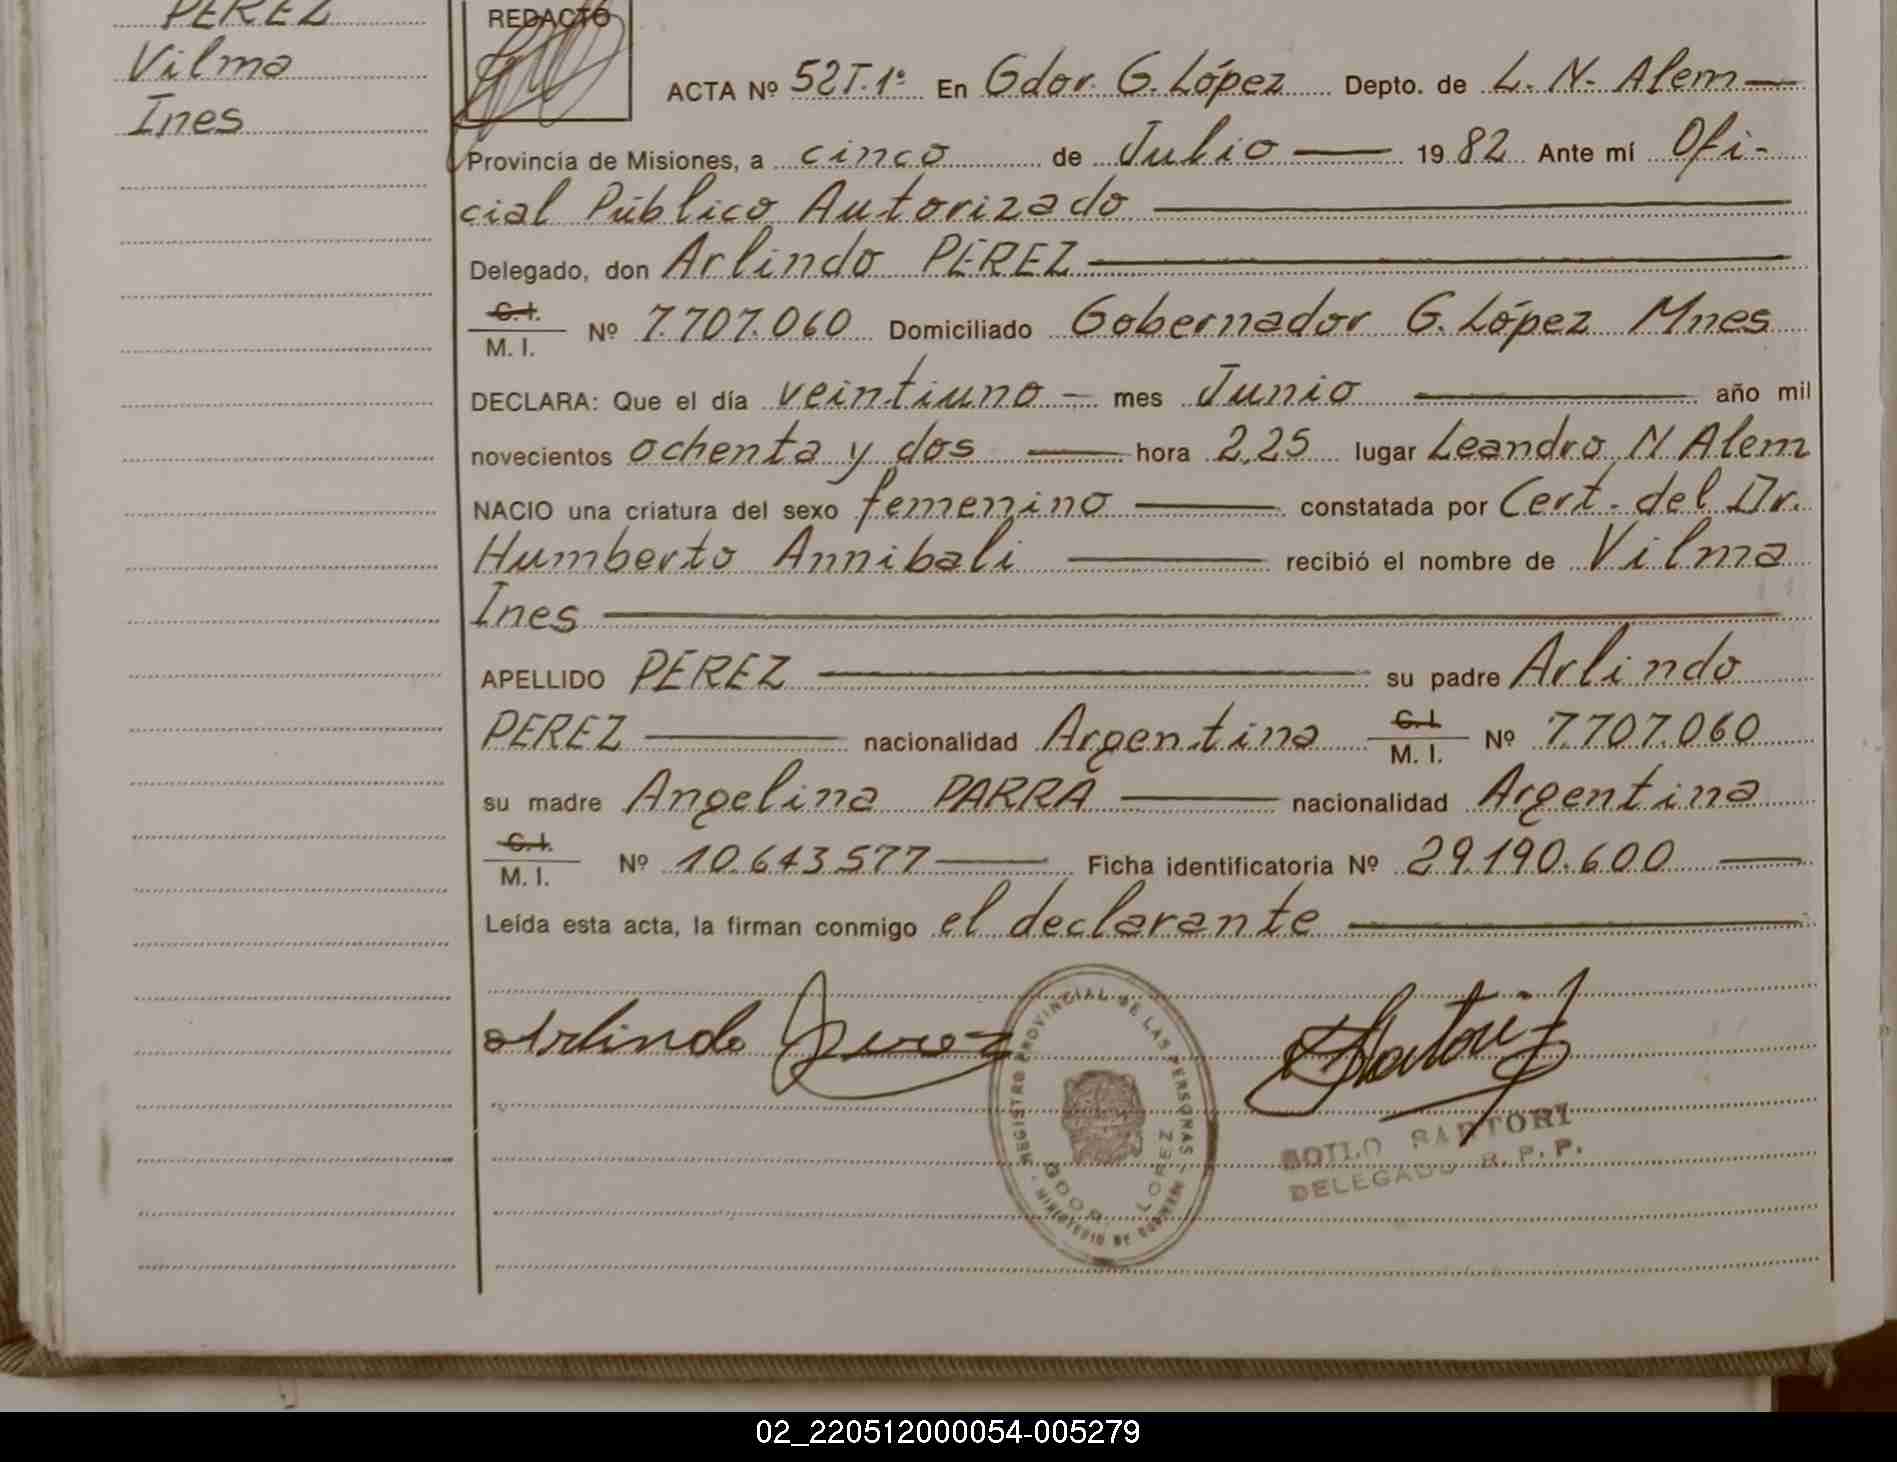 PEREZ
Vilma
Ines
REDACTO
ACTA Nº 52T.1º En Gdor. G. López Depto. de L. N. Alem
Provincia de Misiones, a cinco de Julio 1982 Ante mí Ofi-
cial Público Autorizado
Delegado, don Arlindo PEREZ
C.I.
M. I. Nº 7.707.060 Domiciliado Gobernador G. López Mnes
DECLARA: Que el día veintiuno mes Junio año mil
novecientos ochenta y dos hora 2,25 lugar Leandro N Alem
NACIO una criatura del sexo femenino constatada por Cert. del Dr.
Humberto Annibali recibió el nombre de Vilma
Ines
APELLIDO PEREZ su padre Arlindo
PEREZ nacionalidad Argentina C.I. M. I. Nº 7.707.060
su madre Angelina PARRA nacionalidad Argentina
C.I.
M. I. Nº 10.643.577 Ficha identificatoria Nº 29.190.600
Leída esta acta, la firman conmigo el declarante
Arlindo Perez
REGISTRO PROVINCIAL DE LAS PERSONAS
GDOR. LOPEZ
MINISTERIO DE GOBIERNO
SARTORI
DELEGADO R. P. P.
02_220512000054-005279